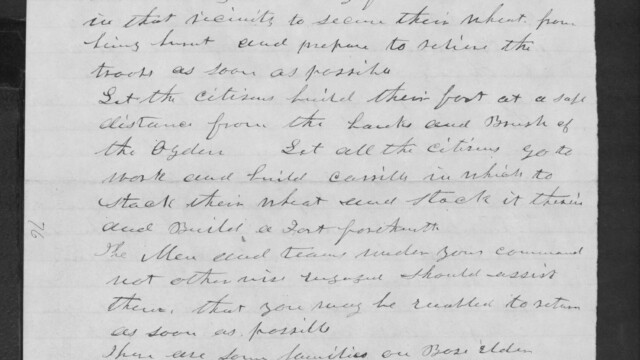 in that vicinity to secure their wheat from
being burnt and prepare to relieve the
troops as soon as possible
Let the citizens build their fort at a safe
distance from the banks and Brush of
the Ogden Let all the citizens go to
work and build corrills in which to
stack their wheat and stack it therein
and Build a Fort forthwith
The Men and teams under your command
not otherwise engaged should assist
them, that you may be enabled to return
as soon as possible
There are some families on Box elder
76